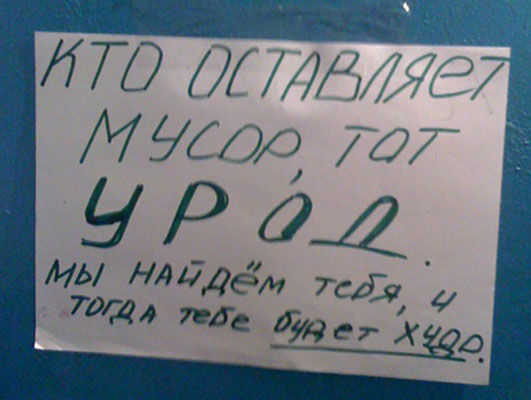 КТО ОСТАВЛЯЕТ
МУСОР, ТОТ
УРОД.
МЫ НАЙДЁМ ТЕБЯ, И
ТОГДА ТЕБЕ БУДЕТ ХУДО.